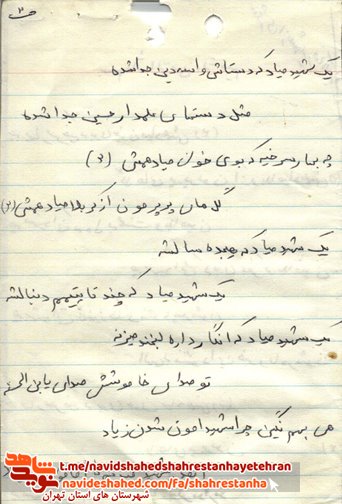 ۳
یک شهید میاد که دستاش واسه دین جدا شده
مثل دستهای علمدار حسین جدا شده
چه بهار سرخیه که بوی خون میاد همش (۲)
گل های پرپرمون از کربلا میاد همش (۲)
یک شهید میاد که هیجده سالشه
یک شهید میاد که چند تا یتیم دنبالشه
یک شهید میاد که انگار داره لبخند میزنه
تو صدای خاموشش صدای یابن الحسنه
هی بهم نگین چرا شهیدامون شدن زیاد
شاهد
t.me/navidshahedshahrestanhayetehran
navideshahed.com/fa/shahrestanha
شهرستان های استان تهران